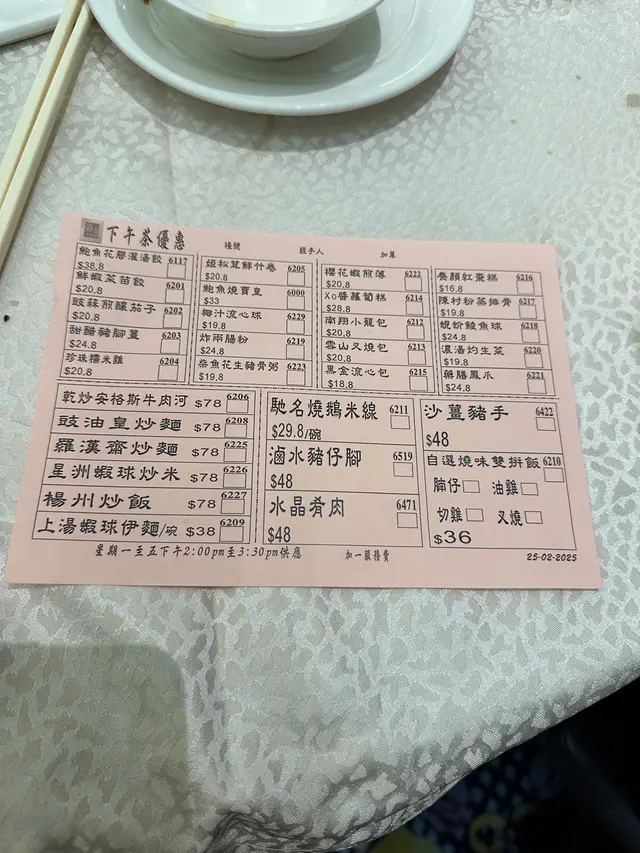 下午茶優惠
檯號 經手人 加單
鮑魚花膠灌湯餃 6117
$38.8
鮮蝦菜苗餃 6201
$20.8
豉蒜煎釀茄子 6202
$20.8
甜醋豬腳薑 6203
$24.8
珍珠糯米雞 6204
$20.8
姬松茸鮮竹卷 6205
$20.8
鮑魚燒賣皇 6000
$33
椰汁流心球 6229
$19.8
炸兩腸粉 6219
$24.8
柴魚花生豬骨粥 6223
$19.8
櫻花蝦煎薄 6222
$20.8
Xo醬蘿蔔糕 6214
$28.8
南翔小籠包 6212
$20.8
雪山叉燒包 6213
$20.8
黑金流心包 6215
$18.8
養顏紅棗糕 6216
$16.8
陳村粉蒸排骨 6217
$19.8
蜆蚧鯪魚球 6218
$24.8
濃湯灼生菜 6220
$19.8
藥膳鳳爪 6221
$24.8
乾炒安格斯牛肉河 $78 6206
豉油皇炒麵 $78 6208
羅漢齋炒麵 $78 6225
星洲蝦球炒米 $78 6226
楊州炒飯 $78 6227
上湯蝦球伊麵/碗 $38 6209
馳名燒鵝米線 6211
$29.8/碗
滷水豬仔腳 6519
$48
水晶肴肉 6471
$48
沙薑豬手 6422
$48
自選燒味雙拼飯 6210
腩仔 油雞
切雞 叉燒
$36
星期一至五下午2:00pm至3:30pm供應 加一服務費
25-02-2025